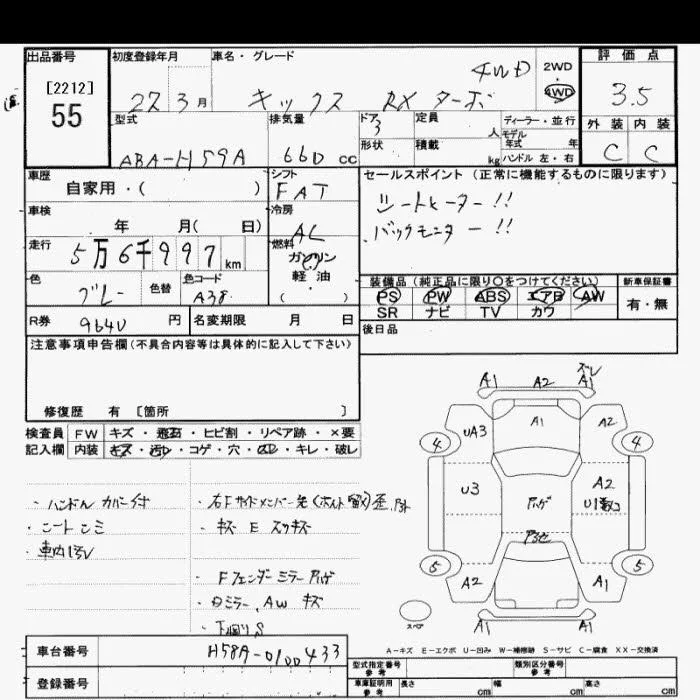 出品番号 初度登録年月 車名・グレード 評価点
[2212]
55
27 3月 キックス RX ターボ 4WD
2WD
4WD
3.5
型式 排気量 ドア 定員 ディーラー・並行 外装 内装
ABA-H59A 660 cc 3 人 モデル年式 年 C C
形状 積載 kg ハンドル 左・右
車歴 シフト セールスポイント(正常に機能するものに限ります)
自家用・( ) FAT シートヒーター!!
車検 冷房 バックモニター!!
年 月( 日) AC
走行 燃料
5万6千997 km ガソリン
軽油
( )
色 色替 色コード 装備品(純正品に限り○をつけてください) 新車保証書
グレー A38 PS PW ABS エアB AW 有・無
SR ナビ TV カワ
R券 9640 円 名変期限 月 日 後日品
注意事項申告欄(不具合内容等は具体的に記入して下さい)
修復歴 有 [箇所 ]
検査員 FW キズ・飛石・ヒビ割・リペア跡・×要
記入欄 内装 キズ・汚レ・コゲ・穴・スレ・キレ・破レ
・ハンドルカバー付
・シートシミ
・キズ E スリキズ
・Fフェンダーミラー
ミラー、AW キズ
・下回りS
A1 A2 A1
UA3 A1 A2
4 4
U3 A2
U1
5 5
A2 A1
A1 A1
スペア
A-キズ E-エクボ U-凹み W-補修跡 S-サビ C-腐食 XX-交換済
車台番号 H58A-0100433
登録番号
型式指定番号 参考 類別区分番号 参考
車庫証明用 参考 長さ cm 幅 cm 高さ cm